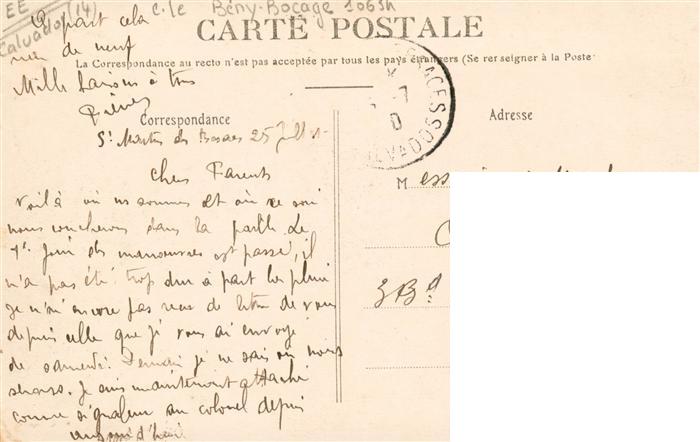 EE
Calvados (14)
c.le Bény-Bocage 10634
A part cela
rien de neuf
Mille baisers à tous
Pierre
CARTE POSTALE
La Correspondance au recto n'est pas acceptée par tous les pays étrangers (Se renseigner à la Poste
Correspondance
Adresse
St Martin des Besaces 25 juillet
Chers Parents
Voilà où ns sommes et où ce soir
nous coucherons dans la paille. Le
1er jour des manoeuvres est passé, il
n'a pas été trop dur à part la pluie
Je n'ai encore pas reçu de lettre de vous
depuis celle que je vous ai envoyé
de samedi. Demain je ne sais où nous
serons. Je suis maintenant attaché
comme signaleur au colonel depuis
aujourd'hui
M ess
Bd
CALVADOS